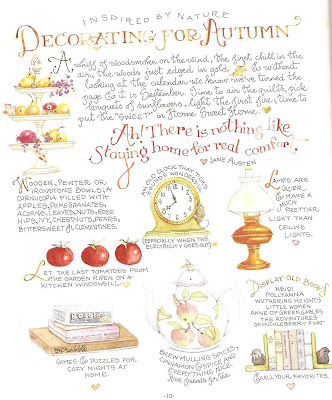 INSPIRED BY NATURE
DECORATING FOR AUTUMN
A whiff of woodsmoke on the wind, the first chill in the
air, the woods just edged in gold & without
looking at the calendar we know we've turned the
page & it is September. Time to air the quilts, pick
bouquets of sunflowers, light the first fire; time to
put the "SWEET" in Home Sweet Home.
Ah! There is nothing like
staying home for real comfort.
JANE AUSTEN
WOODEN, PEWTER OR
IRONSTONE BOWLS, A
CORNUCOPIA FILLED WITH
APPLES, POMEGRANATES,
ACORNS, LEAVES, NUTS, ROSE
HIPS, IVY, CHESTNUTS, PEARS,
BITTERSWEET & CLEMENTINES.
AN OLD CLOCK THAT TICKS
SOUNDS WONDERFUL
ESPECIALLY WHEN THE
ELECTRICITY GOES OUT!
LAMPS ARE
EASIER
& MAKE A
MUCH
PRETTIER
LIGHT THAN
CEILING
LIGHTS.
LET THE LAST TOMATOES FROM
THE GARDEN RIPEN ON A
KITCHEN WINDOWSILL.
Scrabble
GAMES & PUZZLES FOR
COZY NIGHTS AT
HOME.
BREW MULLING SPICES,
CINNAMON & SPICE AND
EVERYTHING NICE.
Have friends for tea.
DISPLAY OLD BOOKS
HEIDI
POLLYANNA
WUTHERING HEIGHTS
LITTLE WOMEN
ANNE OF GREEN GABLES
THE ADVENTURES
OF HUCKLEBERRY FINN
& ALL YOUR FAVORITES.
-10-